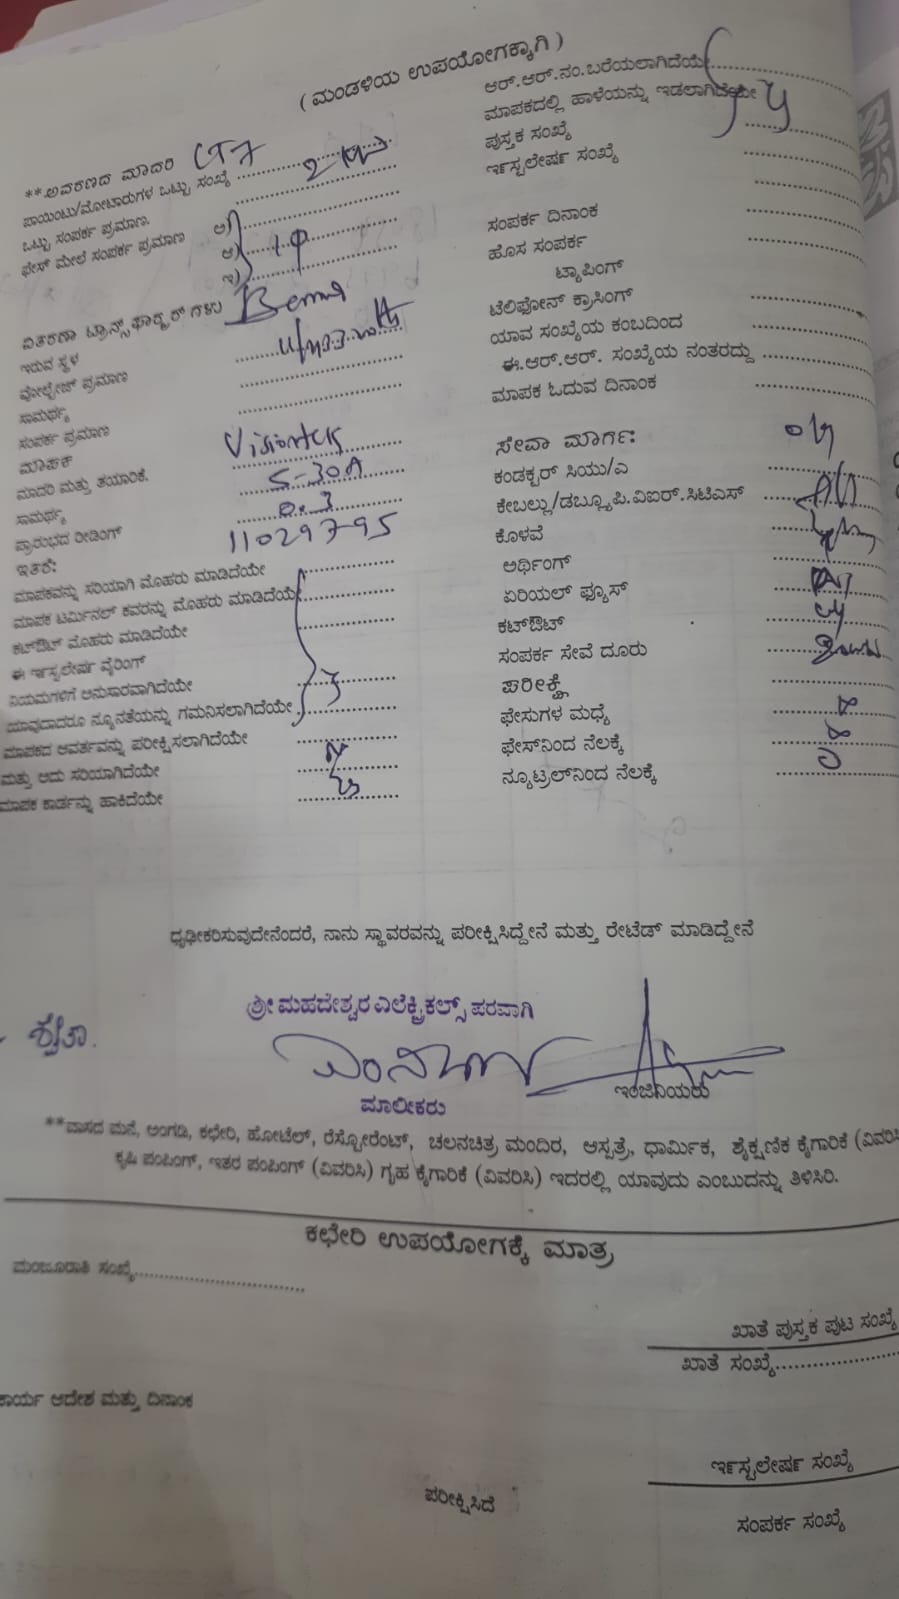 ( ಮಂಡಳಿಯ ಉಪಯೋಗಕ್ಕಾಗಿ )
**ಆವರಣದ ಮಾದರಿ LT7
ಪಾಯಿಂಟು/ಮೋಟಾರುಗಳ ಒಟ್ಟು ಸಂಖ್ಯೆ
ಒಟ್ಟು ಸಂಪರ್ಕ ಪ್ರಮಾಣ.
ಫೇಸ್ ಮೇಲೆ ಸಂಪರ್ಕ ಪ್ರಮಾಣ ಅ)
ಆ) 1φ
ಇ)
ವಿತರಣಾ ಟ್ರಾನ್ಸ್‌ಫಾರ್‍ಮರ್ ಗಳು
ಇರುವ ಸ್ಥಳ
ವೋಲ್ಟೇಜ್ ಪ್ರಮಾಣ
ಸಾಮರ್ಥ್ಯ
ಸಂಪರ್ಕ ಪ್ರಮಾಣ
ಮಾಪಕ
ಮಾದರಿ ಮತ್ತು ತಯಾರಿಕೆ. Visiontek
ಸಾಮರ್ಥ್ಯ 5-30A
ಪ್ರಾರಂಭದ ರೀಡಿಂಗ್ 0.3
ಇತರೆ: 11029795
ಮಾಪಕವನ್ನು ಸರಿಯಾಗಿ ಮೊಹರು ಮಾಡಿದೆಯೇ
ಮಾಪಕ ಟರ್ಮಿನಲ್ ಕವರನ್ನು ಮೊಹರು ಮಾಡಿದೆಯೆ
ಕಟ್‌ಔಟ್ ಮೊಹರು ಮಾಡಿದೆಯೇ
ಈ ಇನ್‌ಸ್ಟಲೇಷನ್ ವೈರಿಂಗ್
ನಿಯಮಗಳಿಗೆ ಅನುಸಾರವಾಗಿದೆಯೇ
ಯಾವುದಾದರೂ ನ್ಯೂನತೆಯನ್ನು ಗಮನಿಸಲಾಗಿದೆಯೇ
ಮಾಪಕದ ಆವರ್ತವನ್ನು ಪರೀಕ್ಷಿಸಲಾಗಿದೆಯೇ
ಮತ್ತು ಅದು ಸರಿಯಾಗಿದೆಯೇ
ಮಾಪಕ ಕಾರ್ಡನ್ನು ಹಾಕಿದೆಯೇ
ಆರ್.ಆರ್.ನಂ.ಬರೆಯಲಾಗಿದೆಯೇ
ಮಾಪಕದಲ್ಲಿ ಹಾಳೆಯನ್ನು ಇಡಲಾಗಿದೆಯೇ
ಪುಸ್ತಕ ಸಂಖ್ಯೆ
ಇನ್‌ಸ್ಟಲೇಷನ್ ಸಂಖ್ಯೆ
ಸಂಪರ್ಕ ದಿನಾಂಕ
ಹೊಸ ಸಂಪರ್ಕ
ಟ್ಯಾಪಿಂಗ್
ಟೆಲಿಫೋನ್ ಕ್ರಾಸಿಂಗ್
ಯಾವ ಸಂಖ್ಯೆಯ ಕಂಬದಿಂದ
ಈ.ಆರ್.ಆರ್. ಸಂಖ್ಯೆಯ ನಂತರದ್ದು
ಮಾಪಕ ಓದುವ ದಿನಾಂಕ
ಸೇವಾ ಮಾರ್ಗ:
ಕಂಡಕ್ಟರ್ ಸಿಯು/ಎ
ಕೇಬಲ್ಲು/ಡಬ್ಲ್ಯೂ.ಪಿ.ವಿಐಆರ್.ಸಿಟಿಎಸ್
ಕೊಳವೆ
ಅರ್ಥಿಂಗ್
ಏರಿಯಲ್ ಫ್ಯೂಸ್
ಕಟ್‌ಔಟ್
ಸಂಪರ್ಕ ಸೇವೆ ದೂರು
ಪರೀಕ್ಷೆ
ಫೇಸುಗಳ ಮಧ್ಯೆ
ಫೇಸ್‌ನಿಂದ ನೆಲಕ್ಕೆ
ನ್ಯೂಟ್ರಲ್‌ನಿಂದ ನೆಲಕ್ಕೆ
ಧೃಢೀಕರಿಸುವುದೇನೆಂದರೆ, ನಾನು ಸ್ಥಾವರವನ್ನು ಪರೀಕ್ಷಿಸಿದ್ದೇನೆ ಮತ್ತು ರೇಟೆಡ್ ಮಾಡಿದ್ದೇನೆ
ಶ್ರೀ ಮಹದೇಶ್ವರ ಎಲೆಕ್ಟ್ರಿಕಲ್ಸ್ ಪರವಾಗಿ
ಶ್ವೇತಾ.
ಮಾಲೀಕರು
ಇಂಜಿನಿಯರು
**ವಾಸದ ಮನೆ, ಅಂಗಡಿ, ಕಛೇರಿ, ಹೋಟೆಲ್, ರೆಸ್ಟೋರೆಂಟ್, ಚಲನಚಿತ್ರ ಮಂದಿರ, ಆಸ್ಪತ್ರೆ, ಧಾರ್ಮಿಕ, ಶೈಕ್ಷಣಿಕ ಕೈಗಾರಿಕೆ (ವಿವರಿಸಿ
ಕೃಷಿ ಪಂಪಿಂಗ್, ಇತರ ಪಂಪಿಂಗ್ (ವಿವರಿಸಿ) ಗೃಹ ಕೈಗಾರಿಕೆ (ವಿವರಿಸಿ) ಇದರಲ್ಲಿ ಯಾವುದು ಎಂಬುದನ್ನು ತಿಳಿಸಿರಿ.
ಕಛೇರಿ ಉಪಯೋಗಕ್ಕೆ ಮಾತ್ರ
ಮಂಜೂರಾತಿ ಸಂಖ್ಯೆ
ಖಾತೆ ಪುಸ್ತಕ ಪುಟ ಸಂಖ್ಯೆ
ಖಾತೆ ಸಂಖ್ಯೆ
ಕಾರ್ಯ ಆದೇಶ ಮತ್ತು ದಿನಾಂಕ
ಇನ್‌ಸ್ಟಲೇಷನ್ ಸಂಖ್ಯೆ
ಪರೀಕ್ಷಿಸಿದೆ
ಸಂಪರ್ಕ ಸಂಖ್ಯೆ